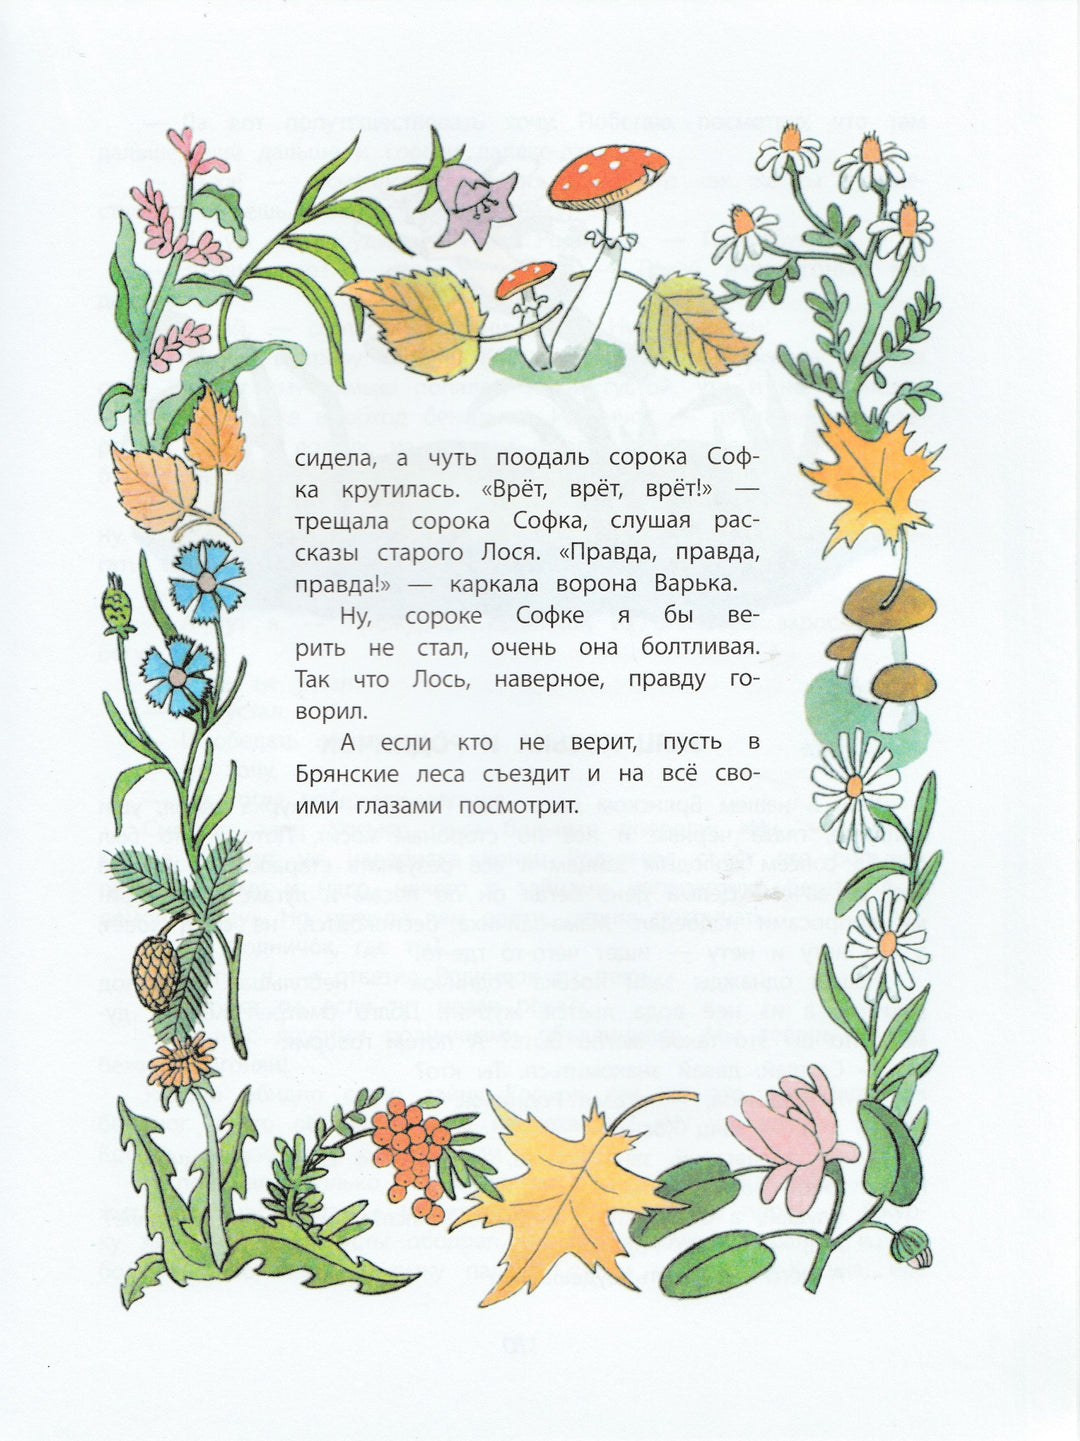 сидела, а чуть поодаль сорока Соф-
ка крутилась. «Врёт, врёт, врёт!» —
трещала сорока Софка, слушая рас-
сказы старого Лося. «Правда, правда,
правда!» — каркала ворона Варька.
Ну, сороке Софке я бы ве-
рить не стал, очень она болтливая.
Так что Лось, наверное, правду го-
ворил.
А если кто не верит, пусть в
Брянские леса съездит и на всё сво-
ими глазами посмотрит.